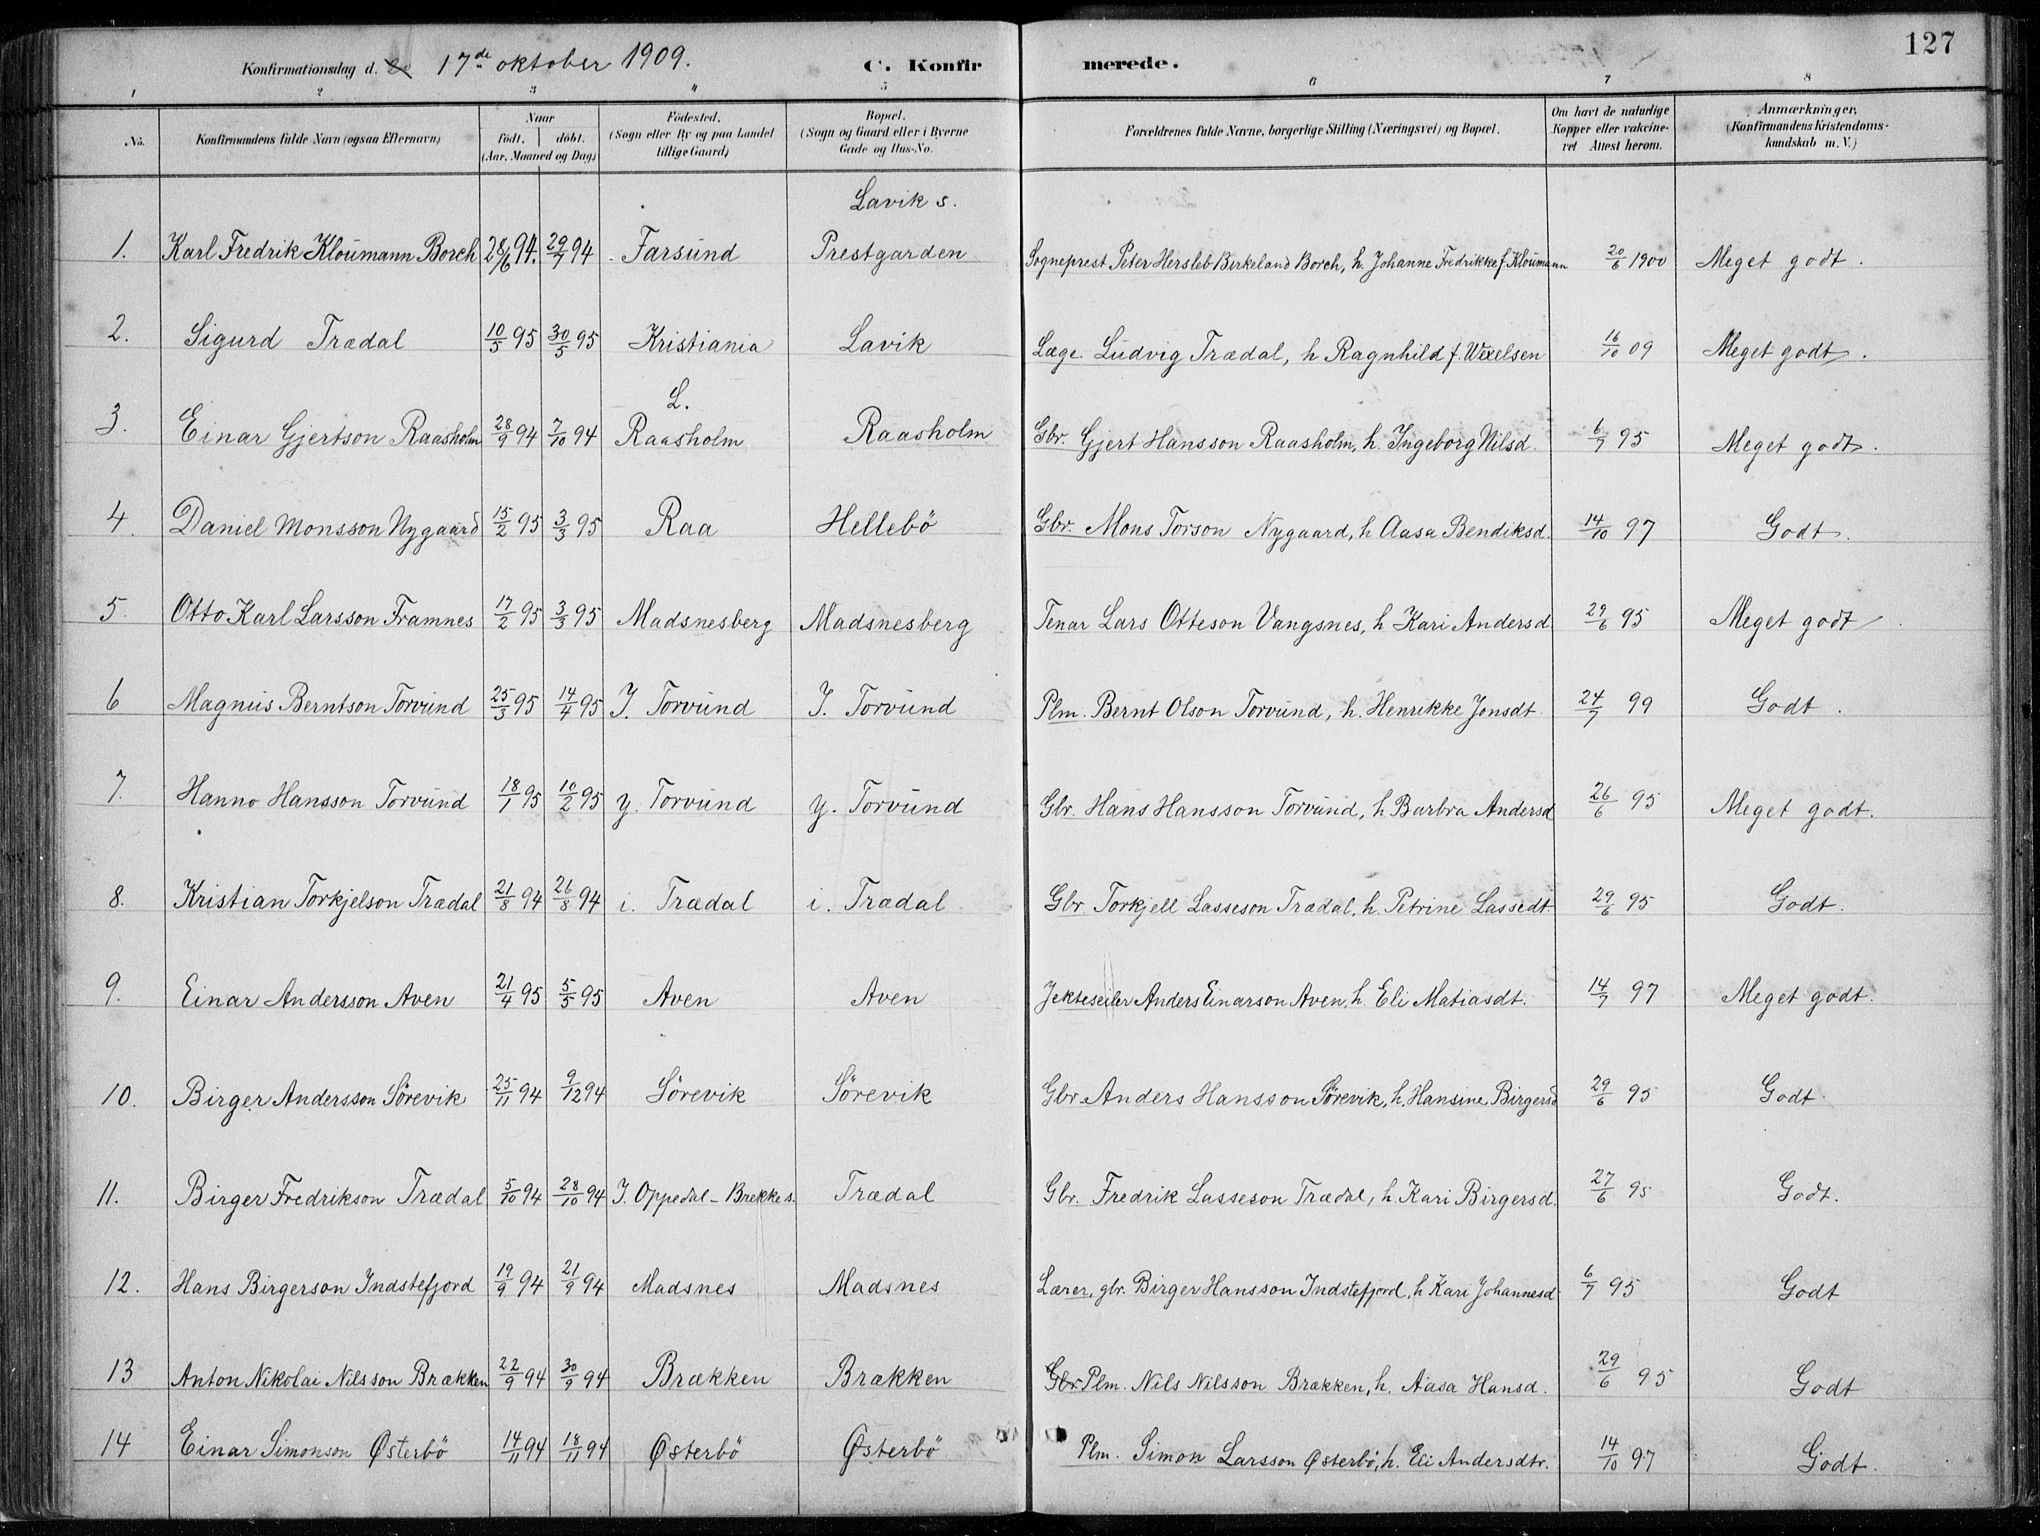 127
Konfirmationsdag d. 17de oktober 1909. C. Konfirmerede.
1 2 3 4 5 6 7 8
No. Konfirmandens fulde Navn (ogsaa Efternavn) Naar födt. döbt. (Aar, Maaned og Dag) Födested. (Sogn eller By og paa Landet tillige Gaard) Bopæl. (Sogn og Gaard eller i Byerne Gade og Hus-No. Forældrenes fulde Navne, borgerlige Stilling (Næringsvei) og Bopæl. Om havt de naturlige Kopper eller vakcineret Attest herom. Anmærkninger, (Konfirmandens Kristendomskundskab m. V.)
Lavik s.
1. Karl Fredrik Kloumann Borch 28/6 94. 29/7 94 Farsund Prestgarden Sogneprest Peter Hersleb Birkeland Borch, h. Johanne Fredrikke f. Kloumann 20/6 1900 Meget godt.
2. Sigurd Trædal 10/5 95 30/5 95 Kristiania Lavik Læge Ludvig Trædal, h Ragnhild f. Wexelsen 16/10 09 Meget godt.
3. Einar Gjertson Raasholm 28/9 94 7/10 94 L. Raasholm Raasholm Gbr. Gjert Hansson Raasholm, h. Ingeborg Nilsd. 6/7 95 Meget godt.
4. Daniel Monsson Nygaard 15/2 95 3/3 95 Raa Hellebö Gbr. Mons Torson Nygaard, h Aasa Bendiksd. 14/10 97 Godt.
5. Otto Karl Larsson Framnes 17/2 95 3/3 95 Madsnesberg Madsnesberg Tenar Lars Otteson Vangsnes, h Kari Andersd. 29/6 95 Meget godt
6 Magnus Berntson Torvund 25/3 95 14/4 95 I. Torvund I. Torvund Plm. Bernt Olson Torvund, h. Henrikke Jonsdt. 24/7 99 Godt.
7. Hanno Hansson Torvund 18/1 95 10/2 95 y. Torvund y. Torvund Gbr. Hans Hansson Torvund, h Barbra Andersd 26/6 95 Meget godt.
8. Kristian Torkjelson Trædal 21/8 94 26/8 94 i. Trædal i. Trædal Gbr Torkjell Lasseson Trædal, h. Petrine Lassedt. 29/6 95 Godt.
9. Einar Andersson Aven 21/4 95 5/5 95 Aven Aven Jekteseiler Anders Einarson Aven, h. Eli Matiasdt. 14/7 97 Meget godt.
10. Birger Andersson Sörevik 25/11 94 9/12 94 Sörevik Sörevik Gbr. Anders Hansson Sörevik, h. Hansine Birgersd 29/6 95 Godt.
11. Birger Fredrikson Trædal 5/10 94 28/10 94 I. Oppedal - Brekke s. Trædal Gbr. Fredrik Lasseson Trædal, h. Kari Birgersd. 27/6 95 Godt.
12. Hans Birgerson Indstefjord 19/9 94 21/9 94 Madsnes Madsnes Lærer, gbr. Birger Hansson Indstefjord, h Kari Johannesd 6/7 95 Godt
13 Anton Nikolai Nilsson Brækken 22/9 94 30/9 94 Brækken Brækken Gbr Plm. Nils Nilsson Brækken, h. Aasa Hansd. 29/6 95 Godt
14 Einar Simonson Østerbö 14/11 94 18/11 94 Østerbö Østerbö Plm. Simon Larsson Østerbö, h. Eli Andersdtr. 14/10 97 Godt.